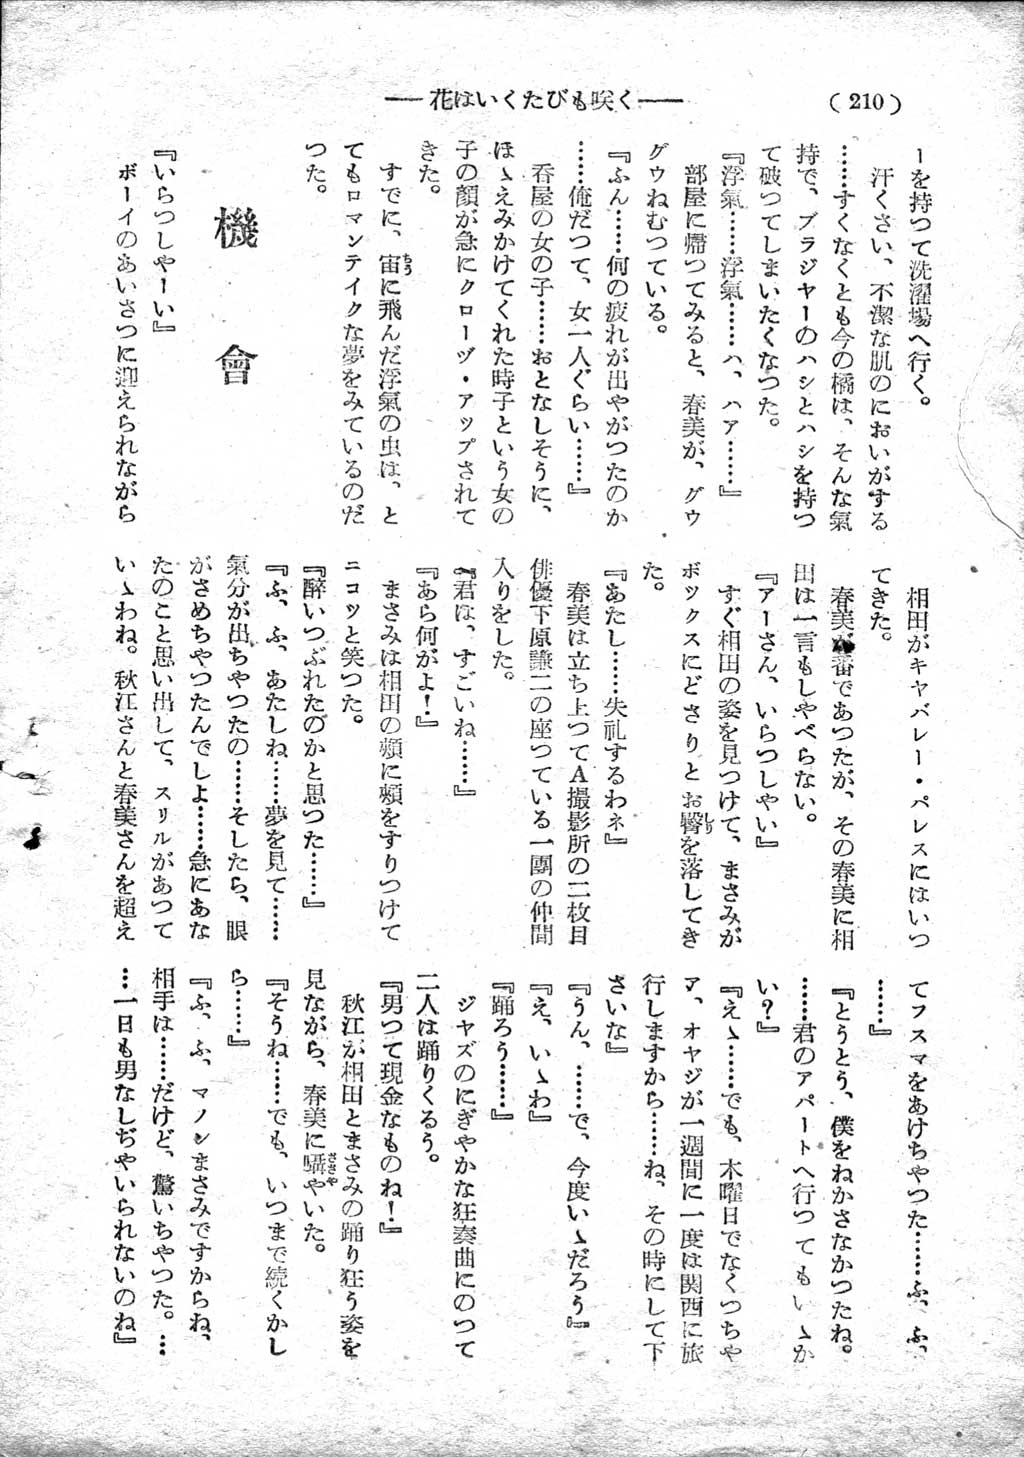 (210)
――花はいくたびも咲く――
ーを持つて洗濯場へ行く。
汗くさい、不潔な肌のにおいがする
……すくなくとも今の橘は、そんな氣
持で、ブラジヤーのハシとハシを持つ
て破つてしまいたくなつた。
『浮氣……浮氣……ハ、ハア……』
部屋に帰つてみると、春美が、グウ
グウねむつている。
『ふん……何の疲れが出やがつたのか
……俺だつて、女一人ぐらい……』
呑屋の女の子……おとなしそうに、
ほゝえみかけてくれた時子という女の
子の顔が急にクローヅ・アツプされて
きた。
すでに、宙に飛んだ浮氣の虫は、と
てもロマンテイクな夢をみているのだ
つた。
機會
『いらつしやーい』
ボーイのあいさつに迎えられながら
相田がキヤバレー・パレスにはいつ
てきた。
春美が番であつたが、その春美に相
田は一言もしやべらない。
『アーさん、いらつしやい』
すぐ相田の姿を見つけて、まさみが
ボツクスにどさりとお臀を落してき
た。
『あたし……失礼するわネ』
春美は立ち上つてA撮影所の二枚目
俳優下原謙二の座つている一團の仲間
入りをした。
『君は、すごいね……』
『あら何がよ！』
まさみは相田の頬に頬をすりつけて
ニコツと笑つた。
『醉いつぶれたのかと思つた……』
『ふ、ふ、あたしね……夢を見て……
氣分が出ちやつたの……そしたら、眼
がさめちやつたんでしよ……急にあな
たのこと思い出して、スリルがあつて
いゝわね。秋江さんと春美さんを超え
てフスマをあけちやつた……ふ、ふ、
……』
『とうとう、僕をねかさなかつたね。
……君のアパートへ行つてもいゝか
い？』
『えゝ……でも、木曜日でなくつちや
ア、オヤジが一週間に一度は関西に旅
行しますから……ね、その時にして下
さいな』
『うん、……で、今度いゝだろう』
『え、いゝわ』
『踊ろう……』
ジヤズのにぎやかな狂奏曲にのつて
二人は踊りくるう。
『男つて現金なものね！』
秋江が相田とまさみの踊り狂う姿を
見ながら、春美に囁やいた。
『そうね……でも、いつまで続くかし
ら……』
『ふ、ふ、マノンまさみですからね、
相手は……だけど、驚いちやつた。…
…一日も男なしぢやいられないのね』